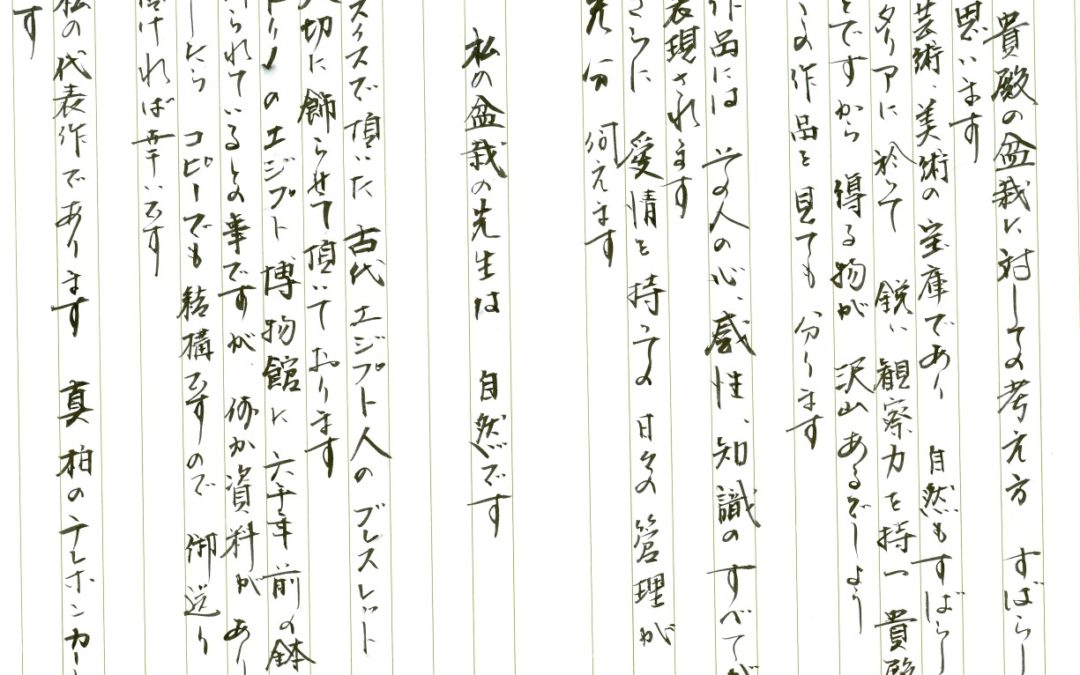 貴殿の盆栽に対しての考え方 すばらし
思います
芸術、美術の宝庫であり 自然もすばらし
タリアに於て 鋭い観察力を持つ貴殿
とですから 得る物が 沢山あるでしょう
の作品を見ても 分ります
作品には その人の心、感性、知識のすべてが
表現されます
さらに 愛情を持っての 日々の管理が
充分 伺えます
私の盆栽の先生は 自然です
スイスで頂いた 古代エジプト人のブレスレット
大切に飾らせて頂いております
トリノのエジプト博物館に 六千年前の鉢
られているとの事ですが、何か資料があり
したら コピーでも結構ですので 御送り
頂ければ幸いです
私の代表作であります 真柏のテレホンカー
す